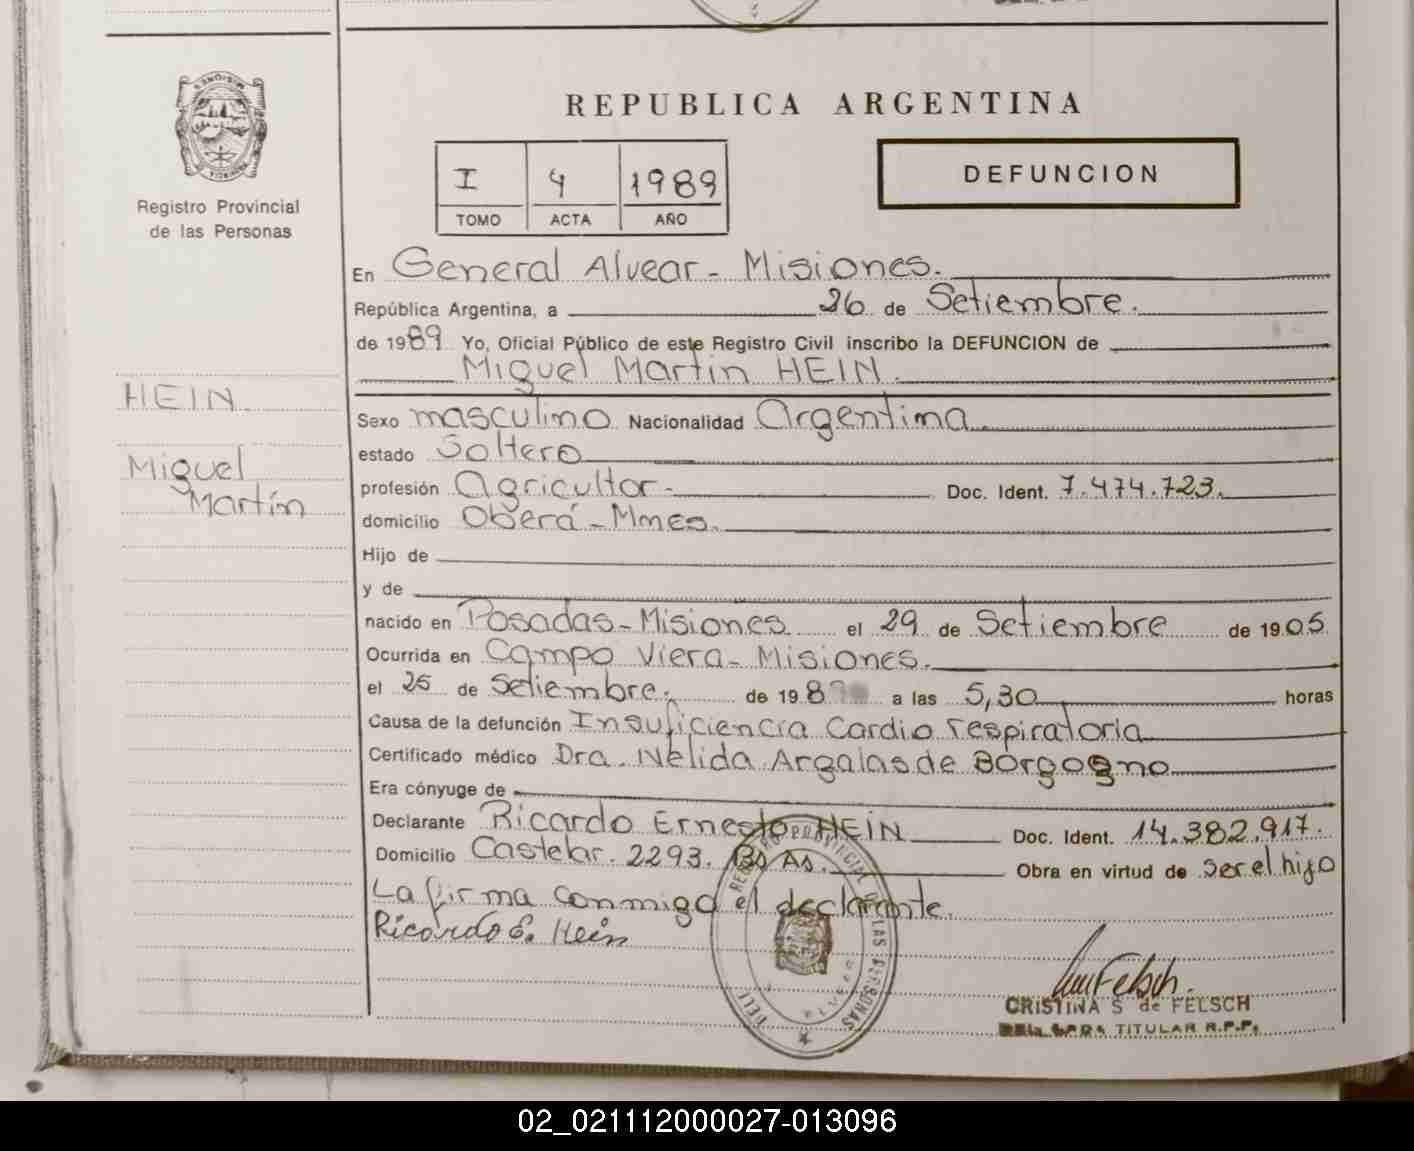 REPUBLICA ARGENTINA
I 4 1989
TOMO ACTA AÑO
DEFUNCION
Registro Provincial
de las Personas
HEIN.
Miguel
Martín
En General Alvear - Misiones.
República Argentina, a 26 de Setiembre.
de 1989 Yo, Oficial Público de este Registro Civil inscribo la DEFUNCION de
Miguel Martin HEIN.
Sexo masculino Nacionalidad Argentina
estado Soltero
profesión Agricultor - Doc. Ident. 7.474.723.
domicilio Oberá - Mnes.
Hijo de
y de
nacido en Posadas - Misiones el 29 de Setiembre de 1905
Ocurrida en Campo Viera - Misiones.
el 25 de Setiembre. de 198 a las 5,30 horas
Causa de la defunción Insuficiencia Cardio respiratoria
Certificado médico Dra. Nélida Argalas de Borgogno
Era cónyuge de
Declarante Ricardo Ernesto HEIN Doc. Ident. 14.382.917.
Domicilio Castelar. 2293. Bs As. Obra en virtud de ser el hijo
La firma conmigo el declarante.
Ricardo E. Hein
REGISTRO PROVINCIAL DE LAS PERSONAS
CRISTINA S de FELSCH
TITULAR R.P.P.
02_021112000027-013096